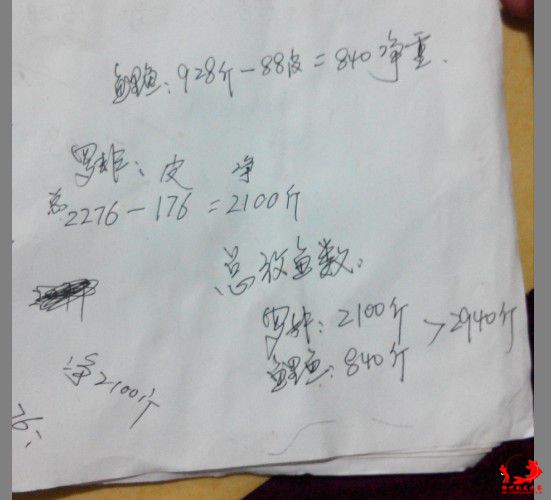 鲤鱼:928斤-88皮=840净重.
罗非:皮 净
总2276-176=2100斤
总放鱼数:
罗非:2100斤 >2940斤
鲤鱼:840斤
净2100斤
76;